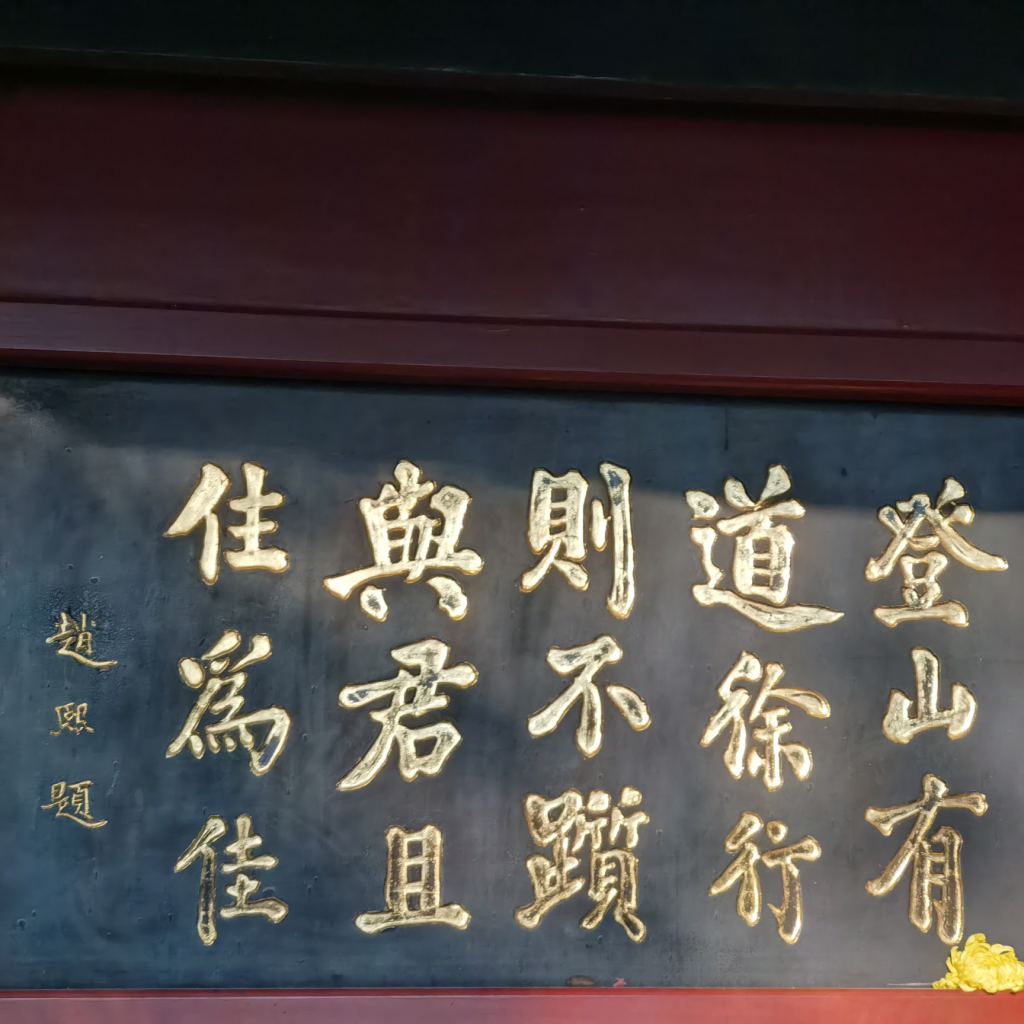 登山有
道徐行
則不躓
與君且
住為佳
趙熙題